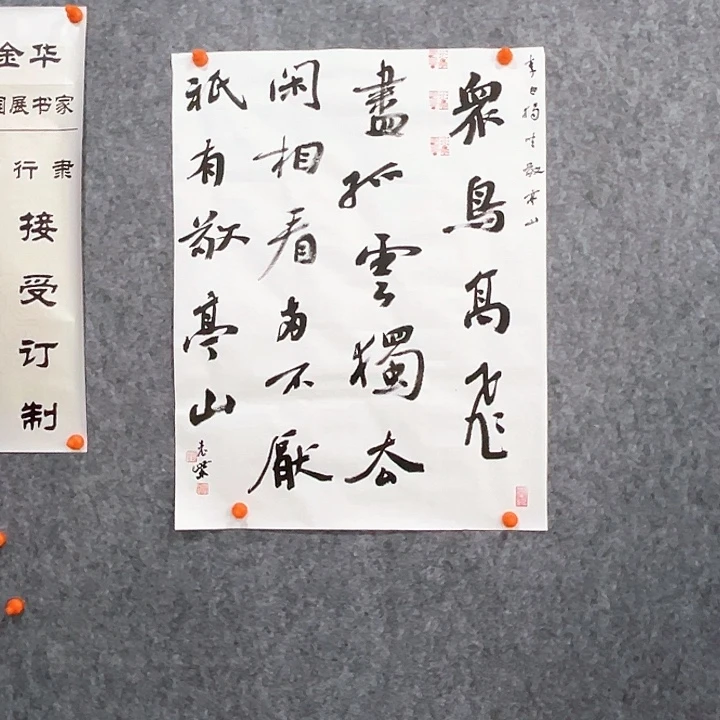 金华
国展书家
行 隶
接受订制
李白獨坐敬亭山
衆鳥高飛
盡孤雲獨去
閑相看兩不厭
祇有敬亭山